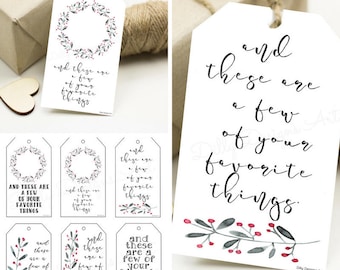 and these are
a few
of your
favorite
things.
and
these are
a few
of your
favorite
things.
AND THESE ARE
A FEW OF YOUR
FAVORITE
THINGS
and these are
a few
of your
favorite
things
and
these are
a few
of your
favorite
things.
and
there are
a few
and
these are
a few of
and
these are
a few of
your